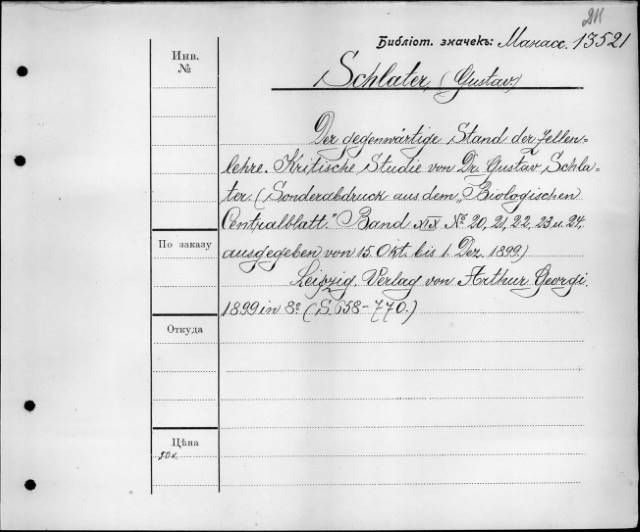 2М
Библіот. значекъ: Манасс. 13521
Инв.
№
Schlater, (Gustav)
Der gegenwärtige Stand der Zellen-
lehre. Kritische Studie von Dr. Gustav Schla-
ter. (Sonderabdruck aus dem „Biologischen
Centralblatt." Band XIX № 20, 21, 22, 23 u. 24,
По заказу
ausgegeben von 15. Okt. bis 1. Dez. 1899.)
Leipzig. Verlag von Arthur Georgi.
1899 in 8º (S. 658-770.)
Откуда
Цѣна